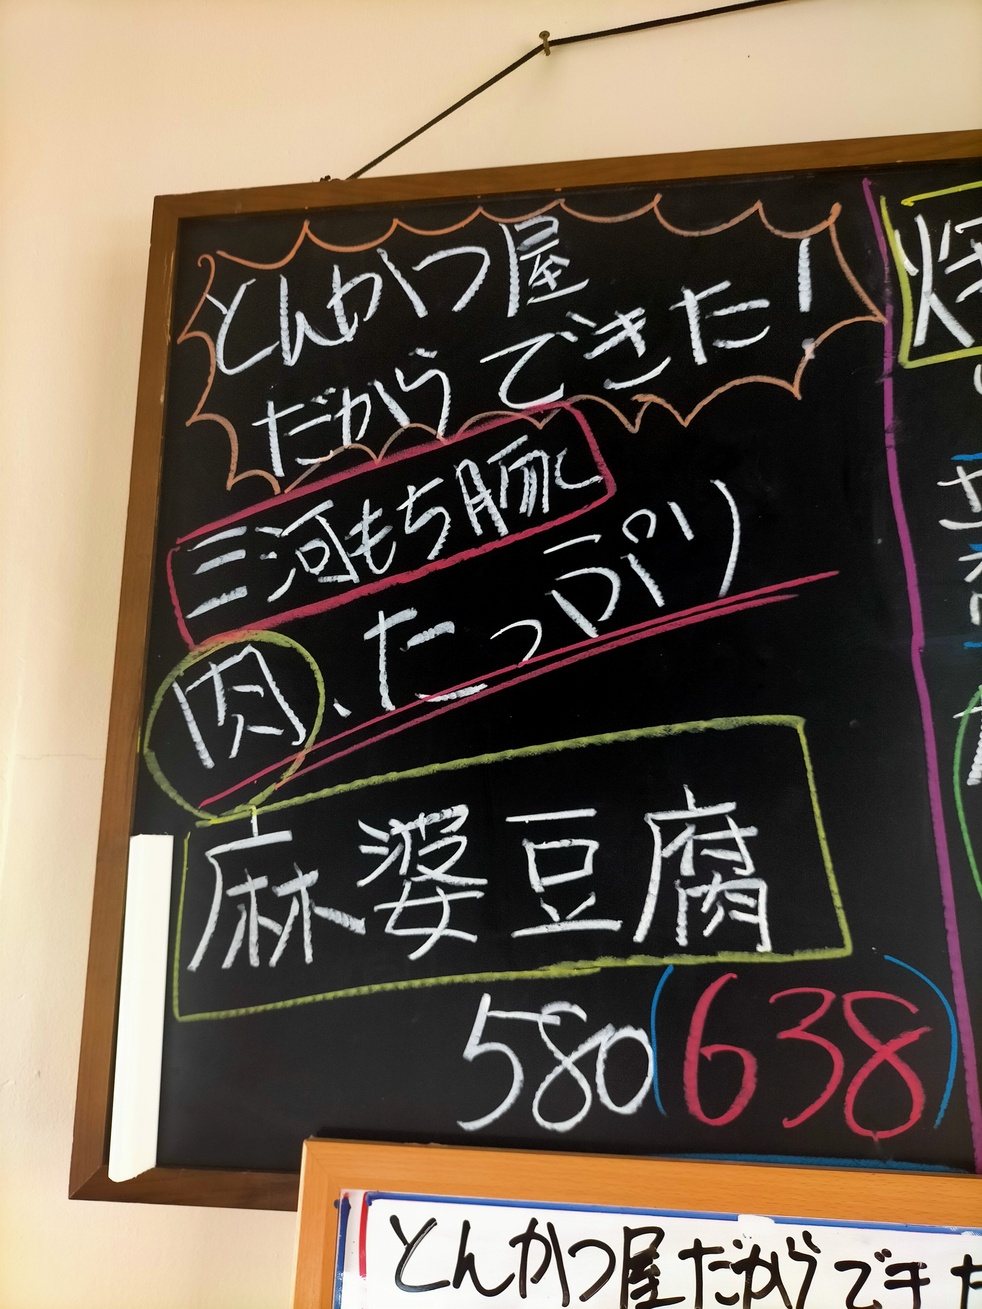 とんかつ屋
だからできた!
三河もち豚
肉、たっぷり
麻婆豆腐
580(638)
とんかつ屋だからできた